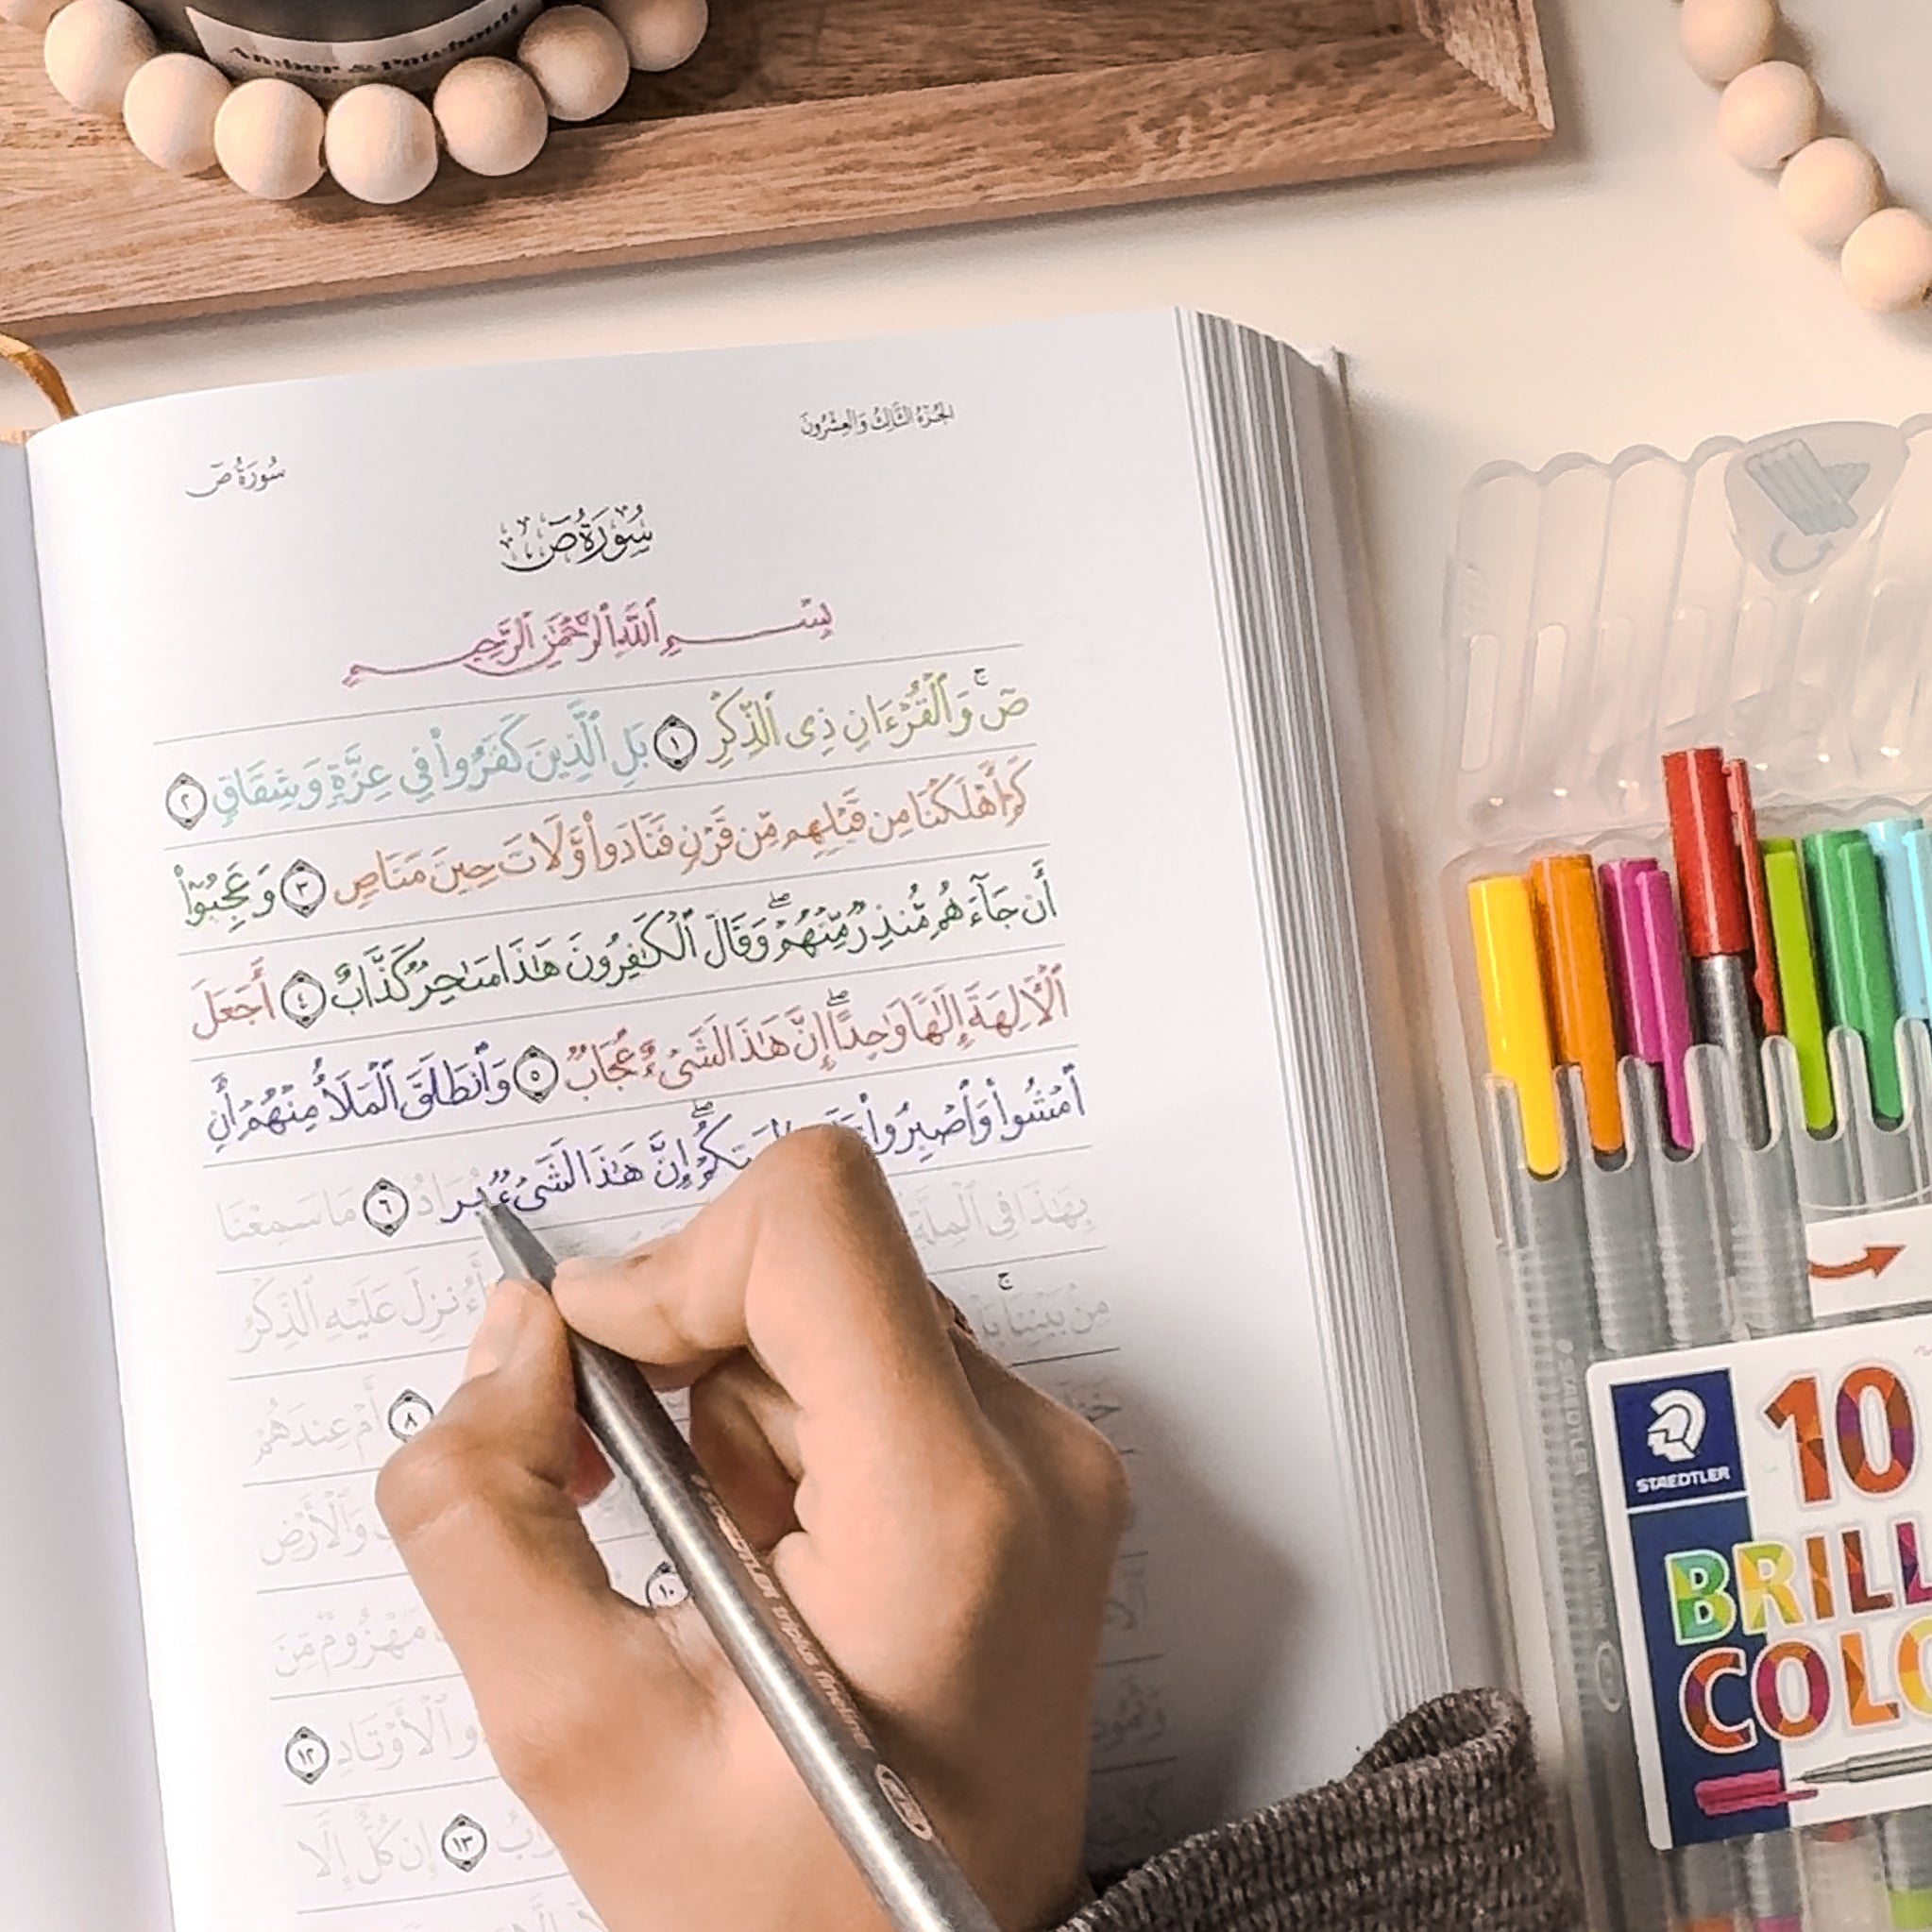 Amber & Patchouli
الجزء الثالث والعشرون
سورة ص
سورة ص
بسم الله الرحمن الرحيم
صٓ ۚ وَٱلۡقُرۡءَانِ ذِي ٱلذِّكۡرِ ١ بَلِ ٱلَّذِينَ كَفَرُواْ فِي عِزَّةٖ وَشِقَاقٖ ٢
كَمۡ أَهۡلَكۡنَا مِن قَبۡلِهِم مِّن قَرۡنٖ فَنَادَواْ وَّلَاتَ حِينَ مَنَاصٖ ٣ وَعَجِبُوٓاْ
أَن جَآءَهُم مُّنذِرٞ مِّنۡهُمۡۖ وَقَالَ ٱلۡكَٰفِرُونَ هَٰذَا سَٰحِرٞ كَذَّابٌ ٤ أَجَعَلَ
ٱلۡأٓلِهَةَ إِلَٰهٗا وَٰحِدًاۖ إِنَّ هَٰذَا لَشَيۡءٌ عُجَابٞ ٥ وَٱنطَلَقَ ٱلۡمَلَأُ مِنۡهُمۡ أَنِ
ٱمۡشُواْ وَٱصۡبِرُواْ إِنَّ هَٰذَا لَشَيۡءٞ يُرَادُ ٦ مَا سَمِعۡنَا
بِهَٰذَا فِي ٱلۡمِلَّةِ
مِنۢ بَيۡنِنَاۚ أَءُنزِلَ عَلَيۡهِ ٱلذِّكۡرُ
٨ أَمۡ عِندَهُمۡ
وَٱلۡأَرۡضِ
١٠ مَهۡزُومٞ مِّنَ
ٱلۡأَوۡتَادِ ١٢
١٣ إِن كُلٌّ إِلَّا
STAEDTLER triplus fineliner
STAEDTLER
10
BRILL
COLO